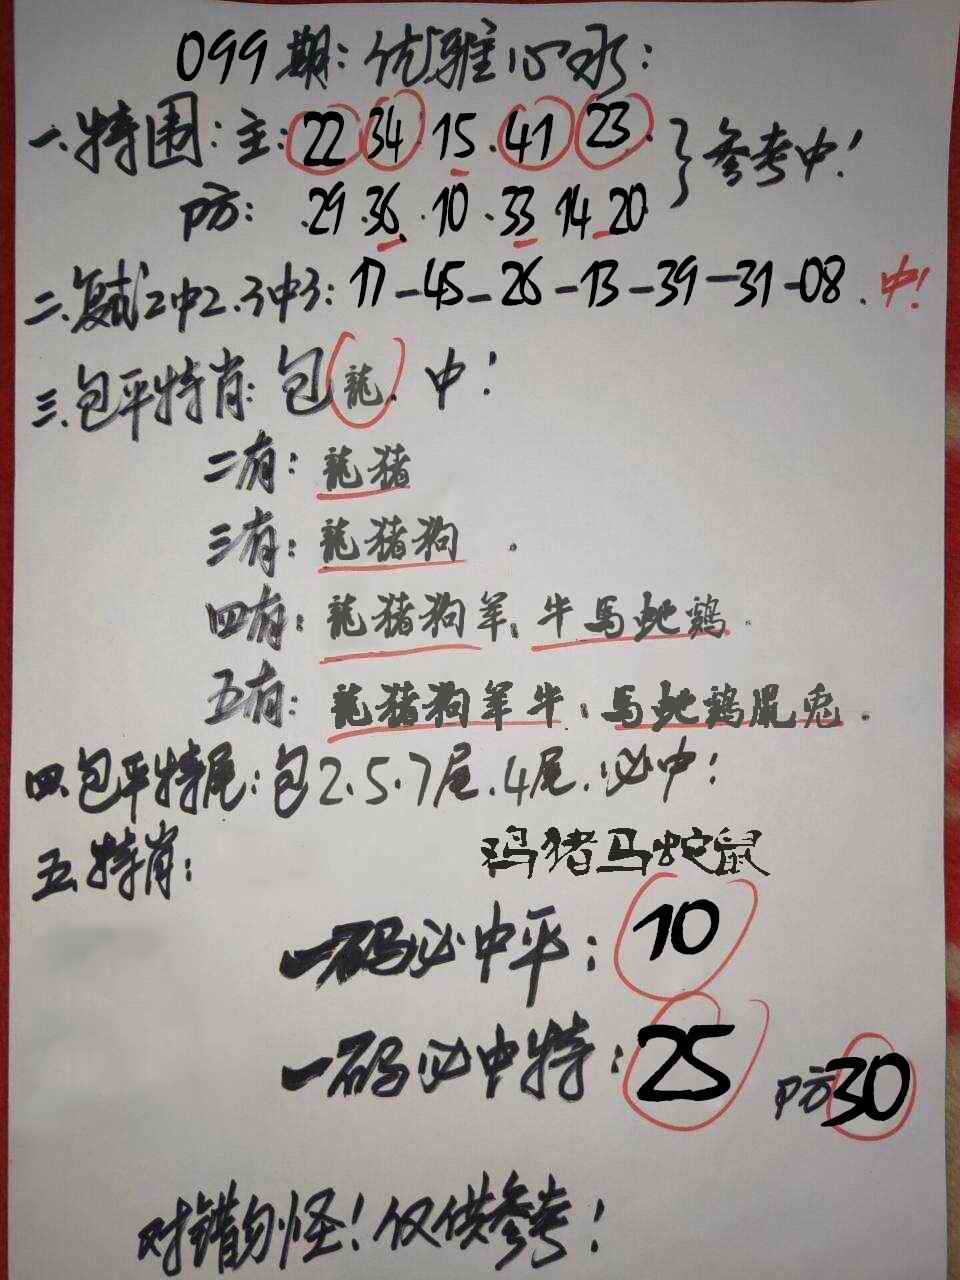 099期:优雅心水:
一.特围:主:22 34 15.41 23. }参考中!
防:.29.36.10.33 14 20
二.复式2中2.3中3:17-45-26-13-39-31-08.中!
三.包平特肖:包龍.中!
二有:龍猪
三有:龍猪狗.
四有:龍猪狗羊、牛馬蛇鷄.
五有:龍猪狗羊牛:馬蛇鷄鼠兎.
四.包平特尾:包2.5.7尾.4尾.必中!
五.特肖: 鸡猪马蛇鼠
一码必中平:10
一码必中特:25 防30
对错勿怪!仅供参考!